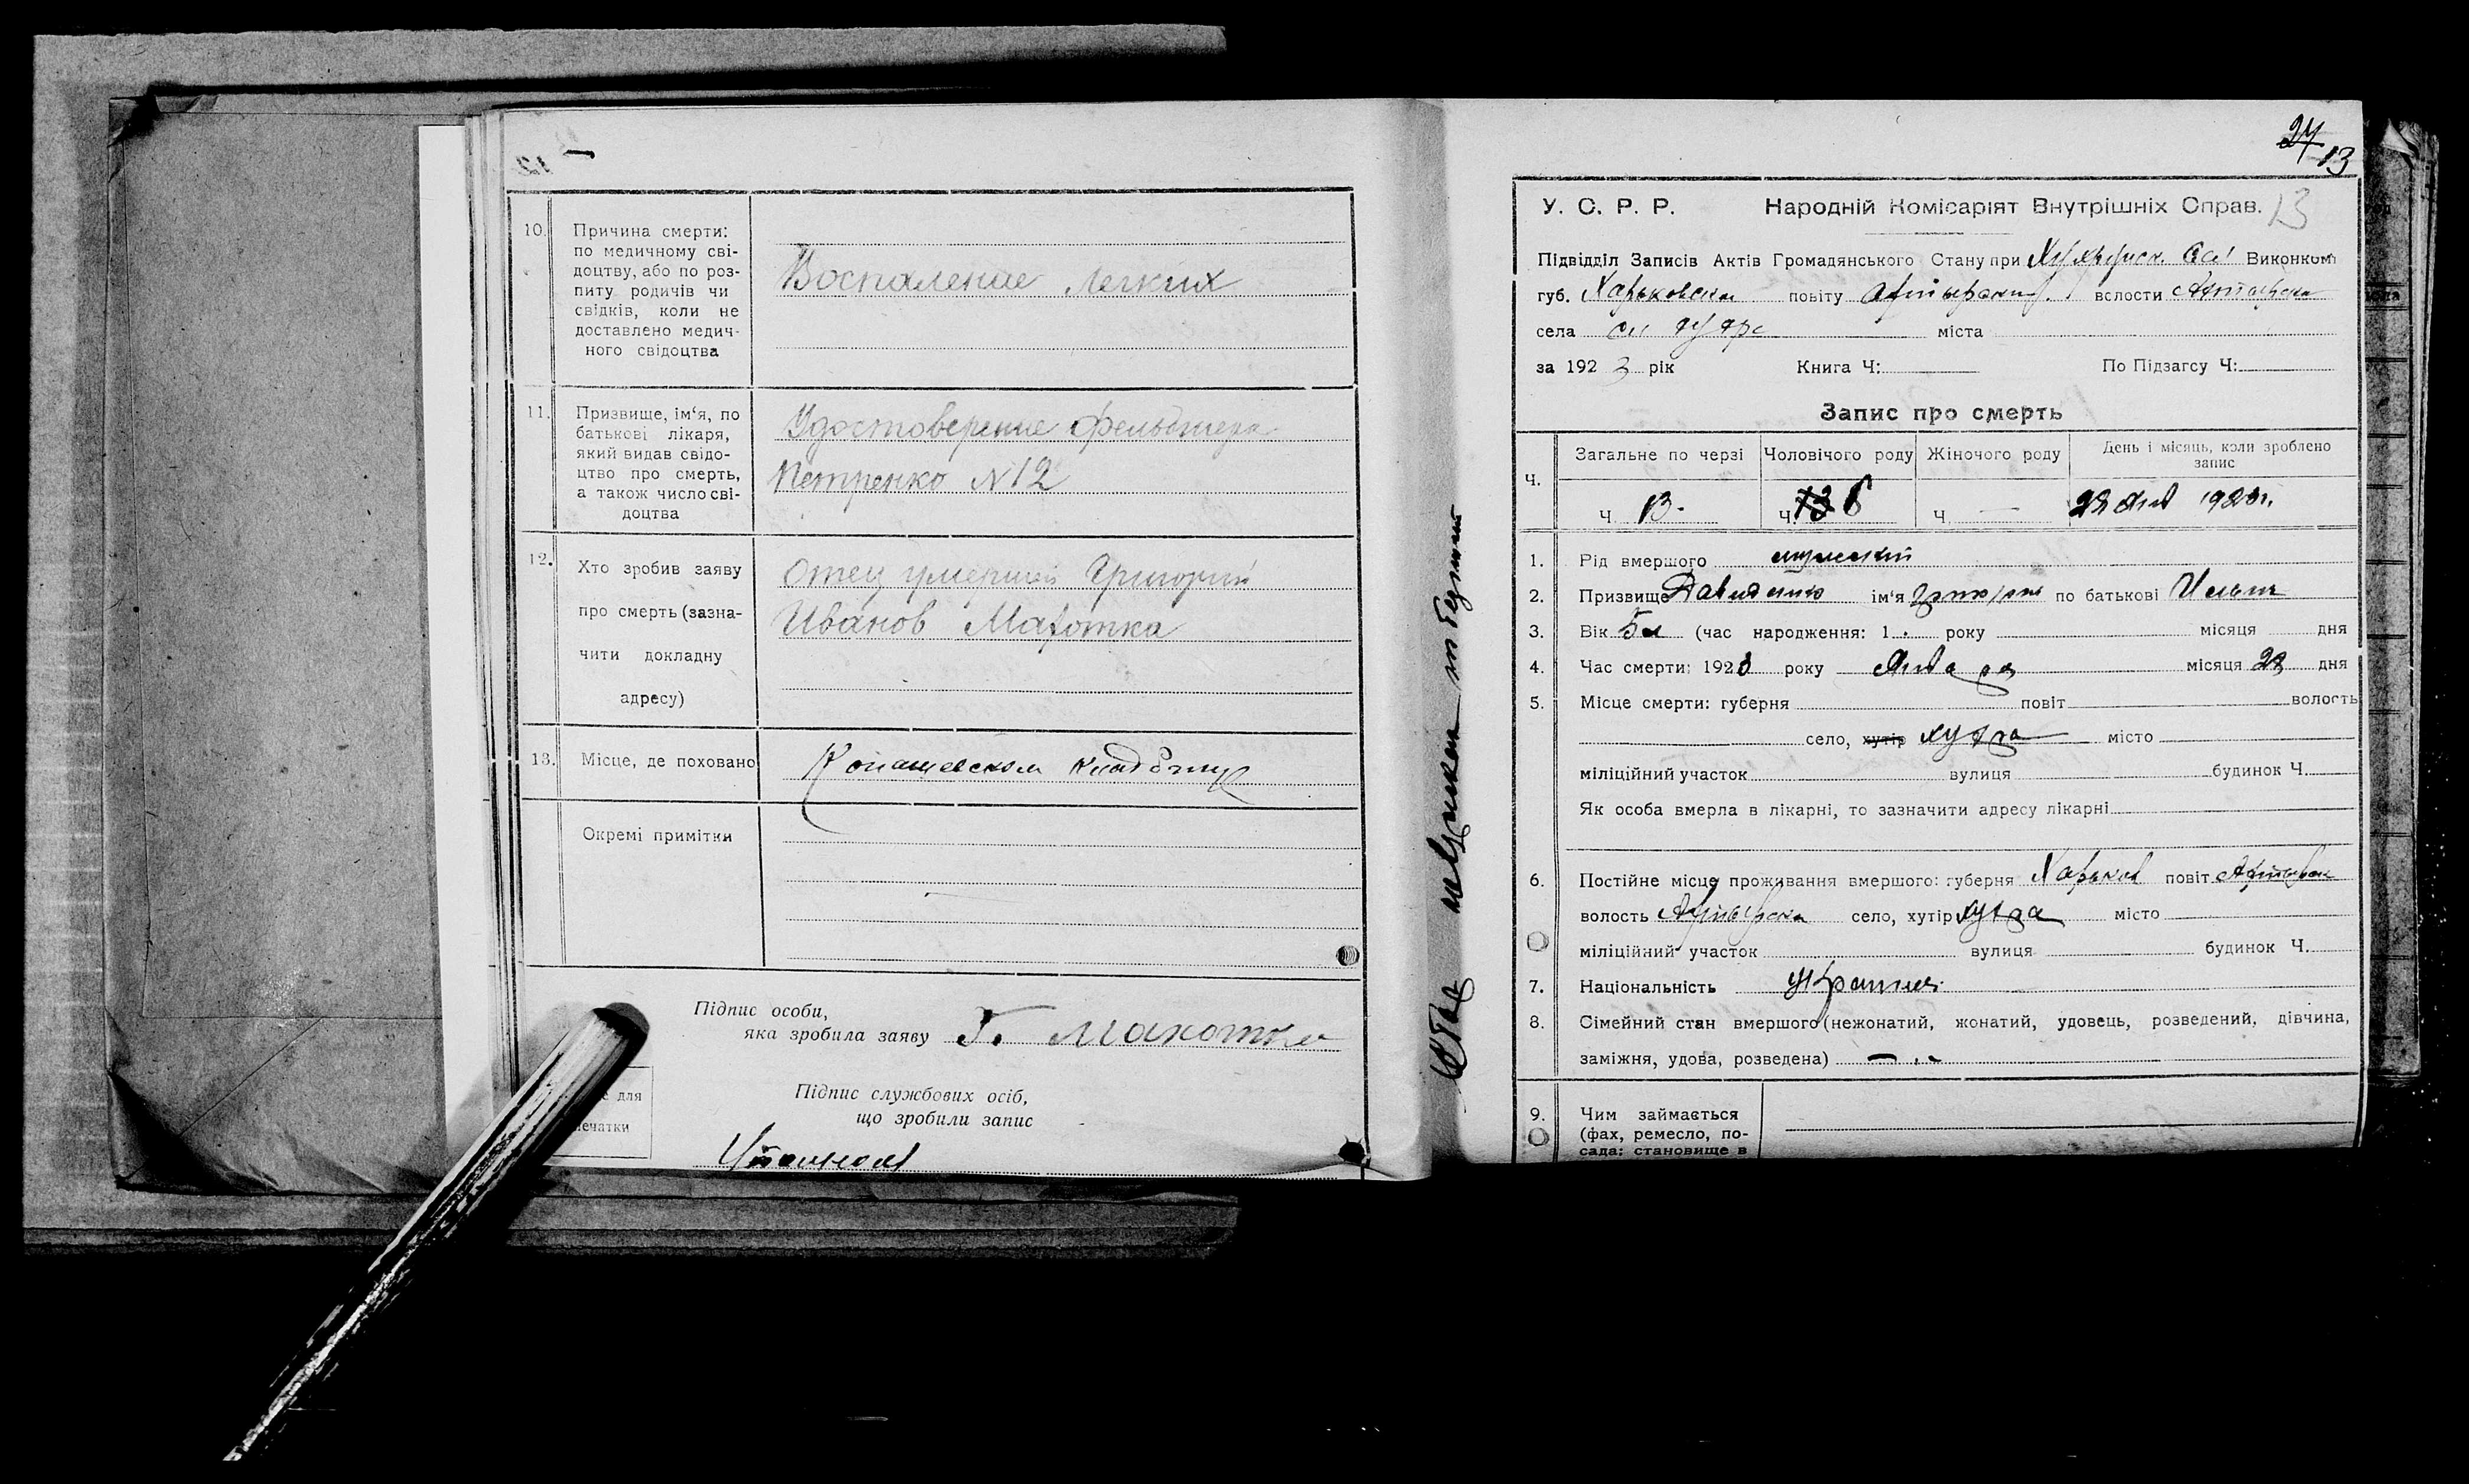 10.
Причина смерти:
по медичному сві-
доцтву, або по роз-
питу родичів чи
свідків, коли не
доставлено медич-
ного свідоцтва
Воспаление Легких
11.
Призвище, ім‘я, по
батькові лікаря,
який видав свідо-
цтво про смерть,
а також число сві-
доцтва
Удостоверение Фельдшера
Петренко N 12
12.
Хто зробив заяву
про смерть (зазна-
чити докладну
адресу)
Отец умершей Григорий
Иванов Махотка
13.
Місце, де поховано
кладбище
Окремі примітки
Підпис особи,
яка зробила заяву Г. Махотка
Підпис службових осіб,
що зробили запис
для
печатки
27
13
У. С. Р. Р. Народній Комісаріят Внутрішніх Справ. 13
Підвідділ Записів Актів Громадянського Стану при Виконком
губ. Харьковская повіту Ахтырский волости Ахтырская
села міста
за 1923 рік Книга Ч: По Підзагсу Ч:
Запис про смерть
Ч. Загальне по черзі Чоловічого роду Жіночого роду День і місяць, коли зроблено
запис
Ч. 13. Ч. 13 6 Ч. — 28 янв 1923 г.
1. Рід вмершого мужеский
2. Призвище Давиденко ім‘я Григорий по батькові
3. Вік (час народження: 1 року місяця дня
4. Час смерти: 1923 року Января місяця 28 дня
5. Місце смерти: губерня повіт волость
село, хутір Хухра місто
міліційний участок вулиця будинок Ч.
Як особа вмерла в лікарні, то зазначити адресу лікарні
6. Постійне місце проживання вмершого: губерня Харьков повіт Ахтырск
волость Ахтырска село, хутір Хухра місто
міліційний участок вулиця будинок Ч.
7. Національність украинец
8. Сімейний стан вмершого (нежонатий, жонатий, удовець, розведений, дівчина,
заміжня, удова, розведена) —
9. Чим займається
(фах, ремесло, по-
сада; становище в